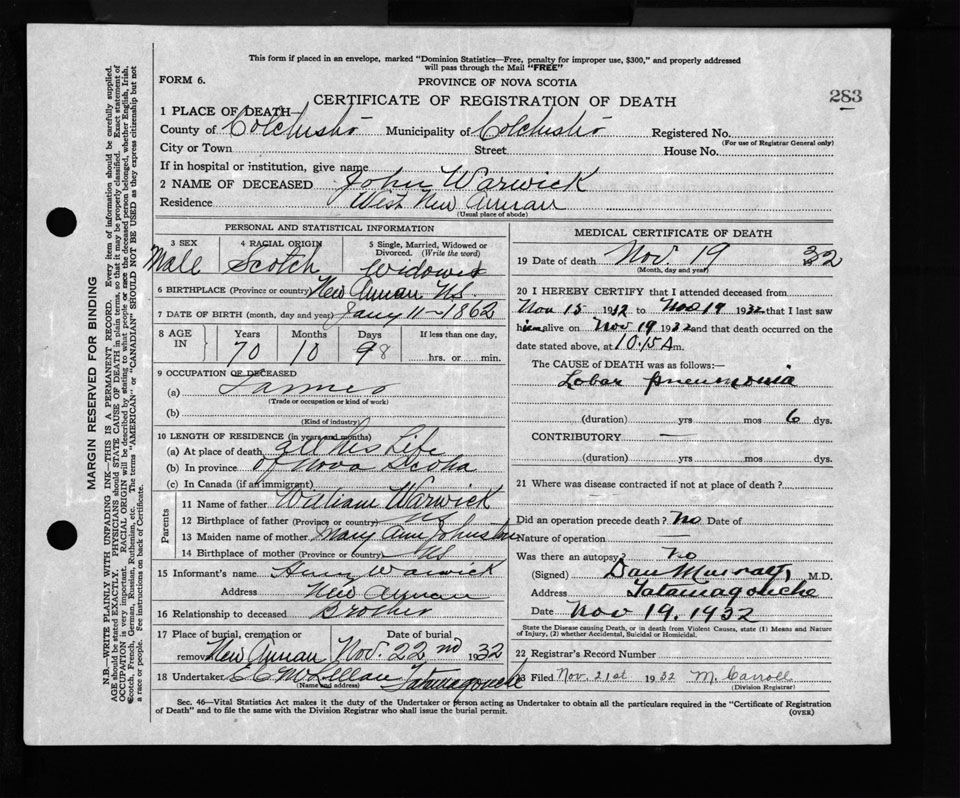 This form if placed in an envelope, marked "Dominion Statistics—Free, penalty for improper use, $300," and properly addressed
will pass through the Mail "FREE"
FORM 6.
PROVINCE OF NOVA SCOTIA
CERTIFICATE OF REGISTRATION OF DEATH
283
1 PLACE OF DEATH—
County of Colchester Municipality of Colchester Registered No.
(For use of Registrar General only)
City or Town Street House No.
If in hospital or institution, give name
2 NAME OF DECEASED John Warwick
Residence West New Annan
(Usual place of abode)
PERSONAL AND STATISTICAL INFORMATION
3 SEX 4 RACIAL ORIGIN 5 Single, Married, Widowed or
Divorced. (Write the word)
Male Scotch Widowed
6 BIRTHPLACE (Province or country) New Annan N.S.
7 DATE OF BIRTH (month, day and year) Jany 11—1862
8 AGE IN Years Months Days If less than one day,
70 10 98 hrs. or min.
9 OCCUPATION OF DECEASED
(a) Farmer
(Trade or occupation or kind of work)
(b)
(Kind of industry)
10 LENGTH OF RESIDENCE (in years and months)
(a) At place of death all his Life
(b) In province of Nova Scotia
(c) In Canada (if an immigrant)
Parents
11 Name of father William Warwick
12 Birthplace of father (Province or country) NS
13 Maiden name of mother Mary Ann Johnston
14 Birthplace of mother (Province or country) NS
15 Informant's name Henry Warwick
Address New Annan
16 Relationship to deceased Brother
17 Place of burial, cremation or Date of burial
removal New Annan Nov. 22nd 1932
18 Undertaker E C McLellan Tatamagouche
(Name and address)
MEDICAL CERTIFICATE OF DEATH
19 Date of death Nov. 19 32
(Month, day and year)
20 I HEREBY CERTIFY that I attended deceased from
Nov 15 1932 to Nov 19 1932 that I last saw
him alive on Nov 19 1932 and that death occurred on
date stated above, at 10.15 A m.
The CAUSE OF DEATH was as follows:—
Lobar pneumonia
(duration) yrs mos 6 dys.
CONTRIBUTORY —
(duration) yrs mos dys.
21 Where was disease contracted if not at place of death?
Did an operation precede death? No Date of
Nature of operation —
Was there an autopsy? no
(Signed) Dan Murray, M.D.
Address Tatamagouche
Date Nov 19. 1932
State the Disease causing Death, or in death from Violent Causes, state (1) Means and Nature
of Injury, (2) whether Accidental, Suicidal or Homicidal.
22 Registrar's Record Number
23 Filed Nov. 21st 1932 M. Carroll
(Division Registrar)
Sec. 46—Vital Statistics Act makes it the duty of the Undertaker or person acting as Undertaker to obtain all the particulars required in the "Certificate of Registration
of Death" and to file the same with the Division Registrar who shall issue the burial permit.
(OVER)
MARGIN RESERVED FOR BINDING
N.B.—WRITE PLAINLY WITH UNFADING INK—THIS IS A PERMANENT RECORD. Every item of information should be carefully supplied.
AGE should be stated EXACTLY. PHYSICIANS should STATE CAUSE OF DEATH in plain terms, so that it may be properly classified. Exact statement of
OCCUPATION is very important. RACIAL ORIGIN will be described by stating to what people or race the deceased person belonged, whether English, Irish,
Scotch, French, German, Russian, Ruthenian, etc. The terms "AMERICAN" or "CANADIAN" SHOULD NOT BE USED as they express citizenship but not
a race or people. See instructions on back of Certificate.